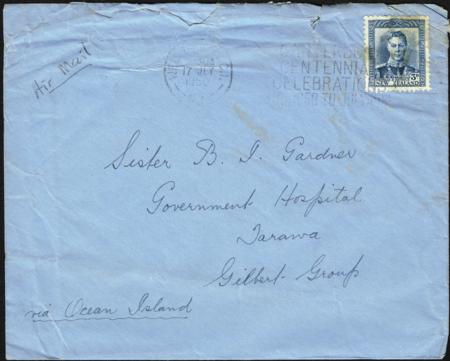 Air Mail
17 JLY
CENTENNIAL
CELEBRATIONS
3D
NEW ZEALAND
Sister B. I. Gardner
Government Hospital
Tarawa
Gilbert Group
via Ocean Island